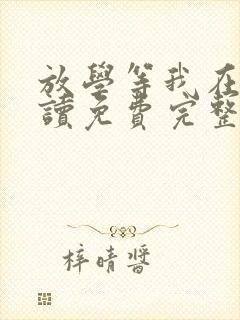 放學等我在
讀免費完整
梓晴醬